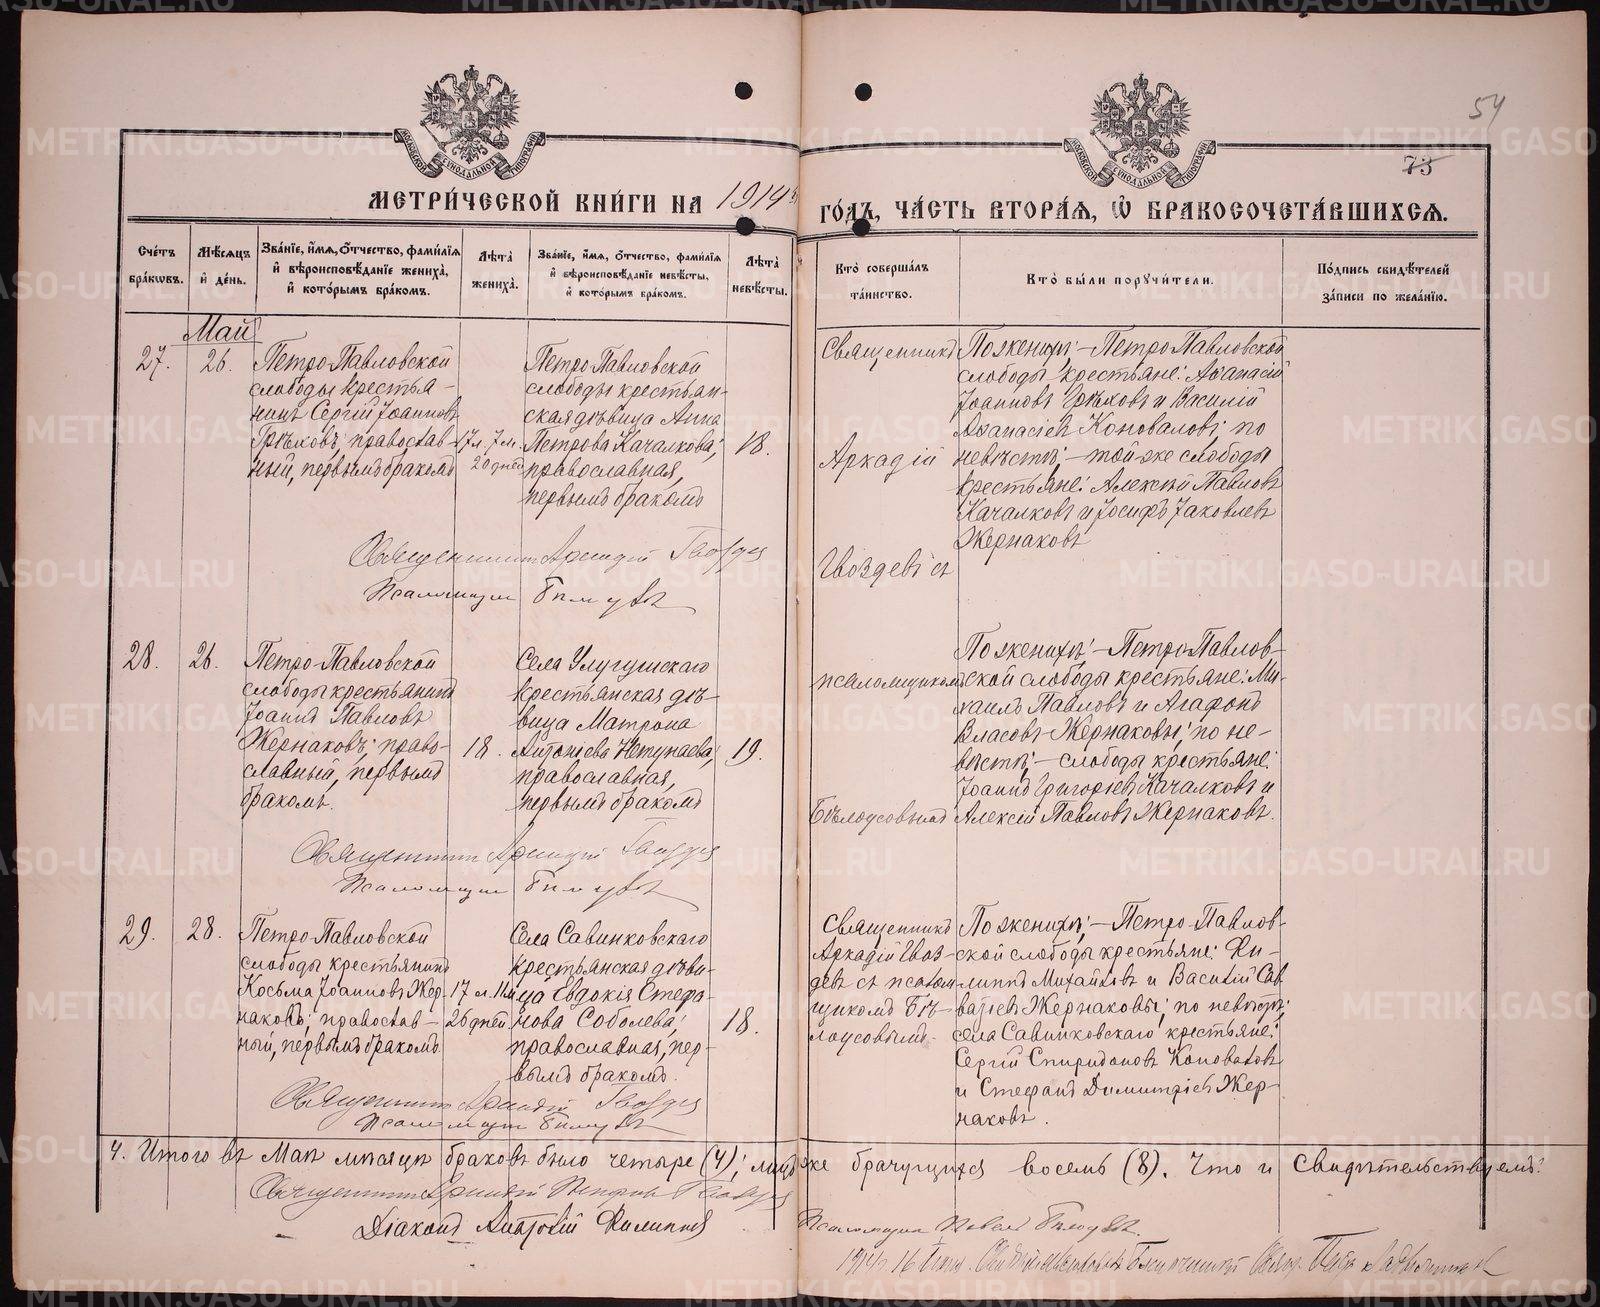 54
73
МЕТРИ́ЧЕСКОЙ КНИ́ГИ НА 1914й ГО́ДЪ, ЧА́СТЬ ВТОРА́Я, Ѽ БРАКОСОЧЕТА́ВШИХСЯ.
Сче́тъ бра́кωвъ.
Мѣ́сяцъ и҆ де́нь.
Зва́нїе, и҆́мя, ѻ҆́тчество, фами́лїя и҆ вѣроисповѣ́данїе жениха̀, и҆ кото́рымъ бра́комъ.
Лѣ́та жениха̀.
Зва́нїе, и҆́мя, ѻ҆́тчество, фами́лїя и҆ вѣроисповѣ́данїе невѣ́сты, и҆ кото́рымъ бра́комъ.
Лѣ́та невѣ́сты.
Кто̀ соверша́лъ та́инство.
Кто̀ бы́ли порꙋчи́тели.
По́дпись свидѣ́телей за́писи по жела́нїю.
Май
27.
26.
Петро-Павловской
слободы крестья-
нинъ Сергій Іоанновъ
Грѣховъ, православ-
ный, первымъ бракомъ
17 л. 7 м.
20 дней
Петро-Павловской
слободы крестьян-
ская дѣвица Анна
Петрова Качалкова,
православная,
первымъ бракомъ
18.
Священникъ
Аркадій
Гвоздевъ съ
По женихѣ; – Петро-Павловской
слободы крестьяне: Аѳанасій
Іоанновъ Грѣховъ и Василій
Аѳанасіевъ Коноваловъ; по
невѣстѣ; – той-же слободы
крестьяне: Алексѣй Павловъ
Качалковъ и Іосифъ Іаковлевъ
Жернаковъ
Священникъ Аркадій Гвоздев
Псаломщик
28.
26.
Петро-Павловской
слободы крестьянинъ
Іоаннъ Павловъ
Жернаковъ, право-
славный, первымъ
бракомъ.
18.
Села
крестьянская дѣ-
вица Матрона
православная,
первымъ бракомъ
19.
псаломщикомъ
Бѣлоусовымъ
По женихѣ; – Петро-Павлов-
ской слободы крестьяне: Ми-
хаилъ Павловъ и Агафонъ
Власовъ Жернаковы; по не-
вѣстѣ; – слободы крестьяне:
Іоаннъ Григорьевъ Качалковъ и
Алексій Павловъ Жернаковъ.
Священникъ Аркадій Гвоздев
Псаломщик
29.
28.
Петро-Павловской
слободы крестьянинъ
Косьма Іоанновъ Жер-
наковъ, православ-
ный, первымъ бракомъ
17 л. 11 м
26 дней
Села Савинковскаго
крестьянская дѣви-
ца Евдокія Стефа-
нова Соболева,
православная, пер-
вымъ бракомъ.
18.
Священникъ
Аркадій Гвоз-
девъ съ псалом-
щикомъ Бѣ-
лоусовымъ.
По женихѣ; – Петро-Павлов-
ской слободы крестьяне: Фи-
липпъ Михайловъ и Василій Сав-
ватіевъ Жернаковы; по невѣстѣ;
села Савинковскаго крестьяне:
Сергій Спиридоновъ Коноваловъ
и Стефанъ Димитріевъ Жер-
наковъ.
Священникъ Аркадій Гвоздев
Псаломщик
4. Итого въ Маѣ мѣсяцѣ браковъ было четыре (4); лицъ же брачущихся восемь (8). Что и свидѣтельствуемъ:
Священникъ Аркадій Петров Гвоздев
Діаконъ
Псаломщик Павел
1914